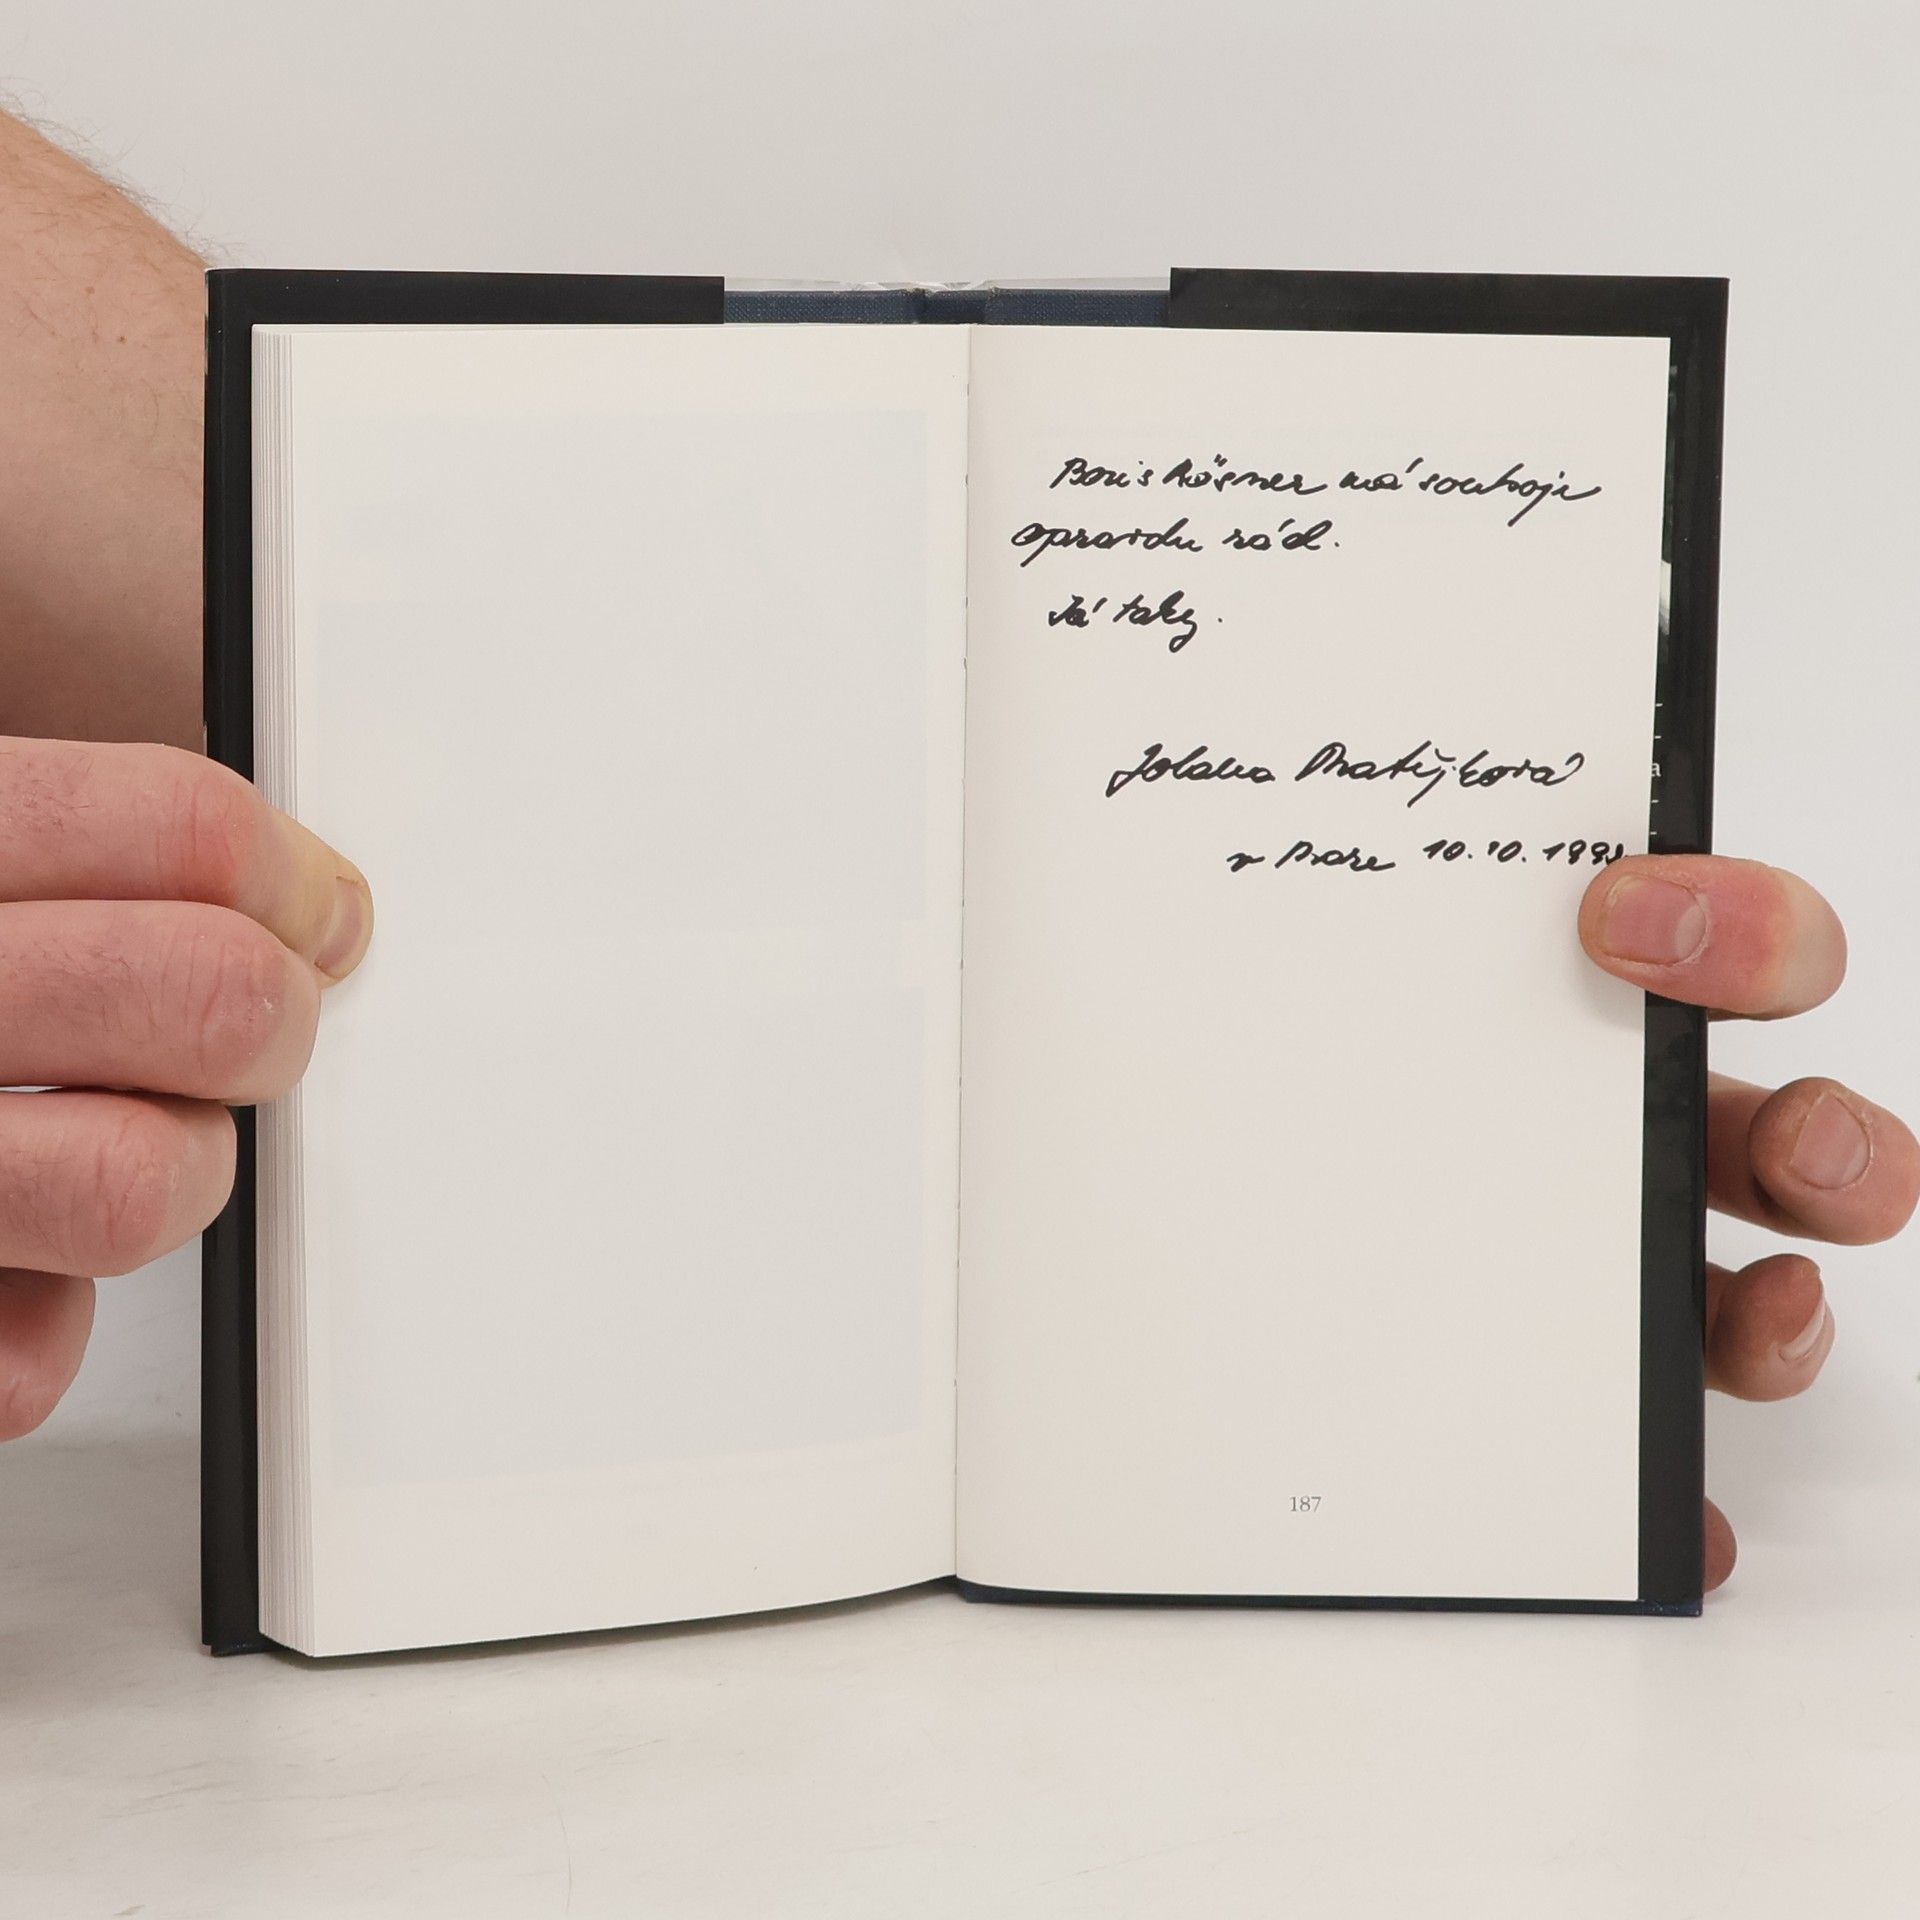 Boris Rösner má souboje
opravdu rád.
Já taky.
Jolana Matějková
v Praze 10.10.199
a
187